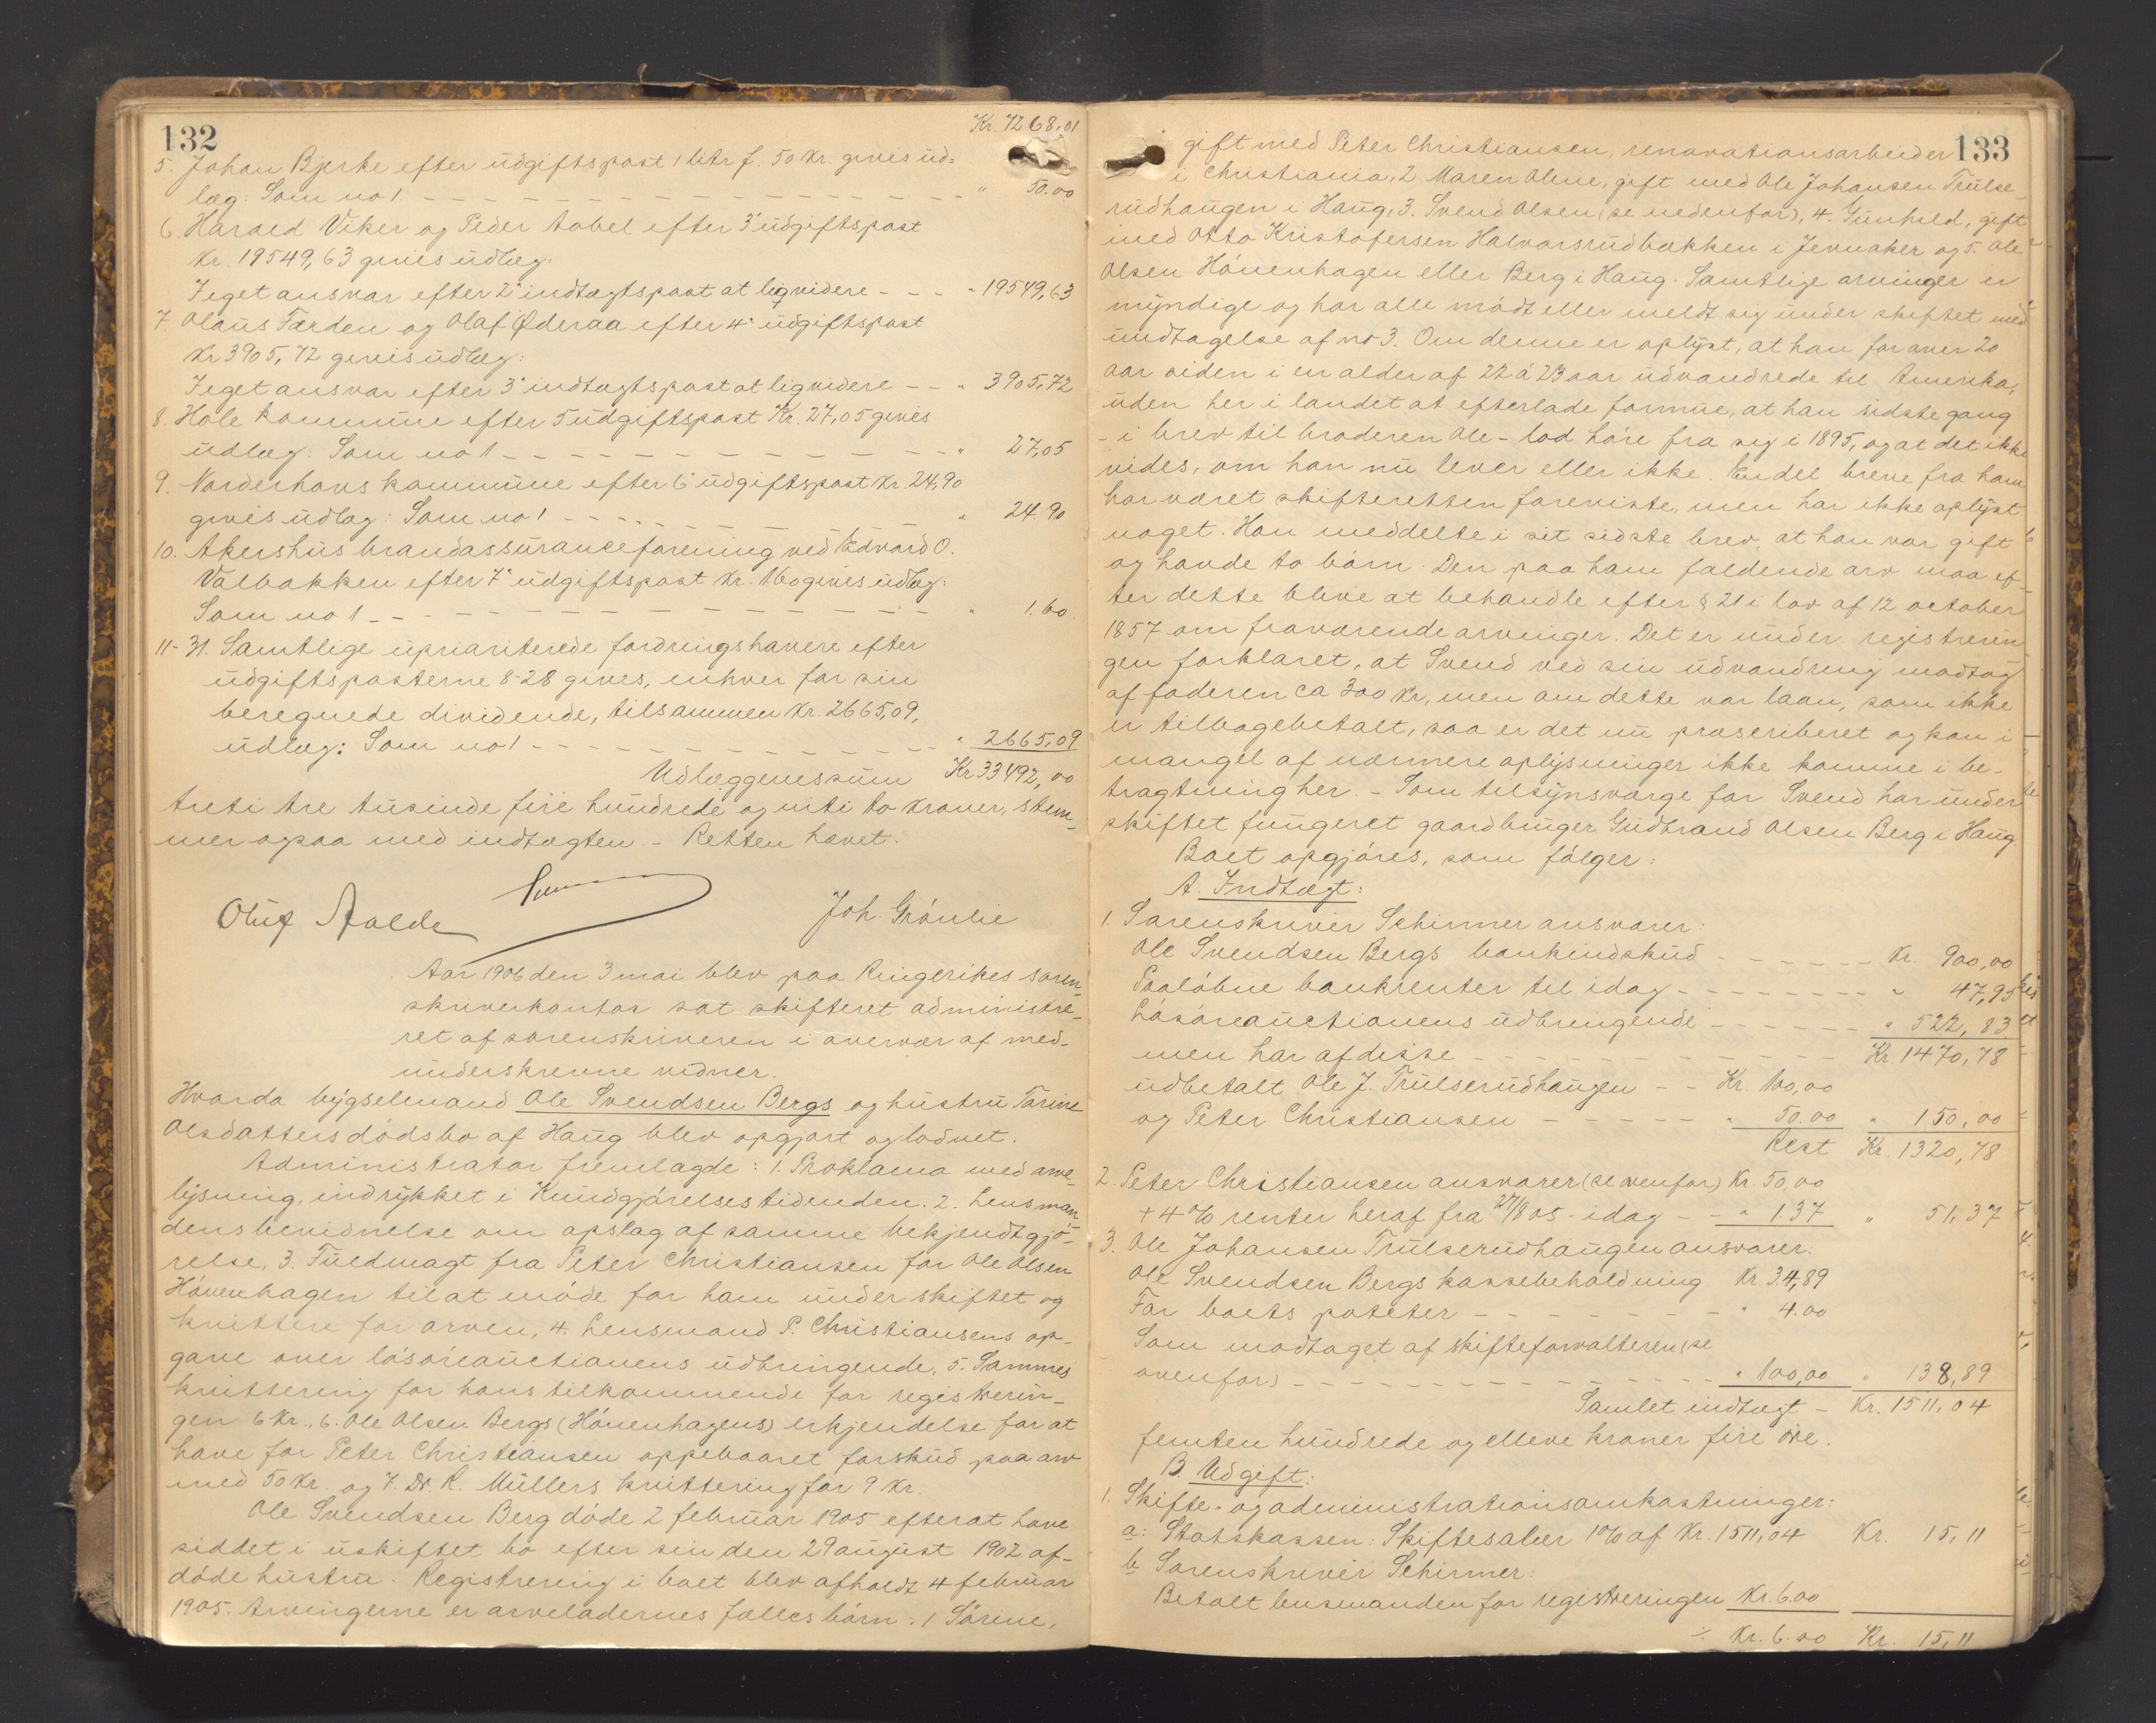 132
Kr. 7268,01
5. Johan Bjerke efter udgiftspost 1 litr f. 50 Kr. gives ud=
læg: Som no 1 " 50.00
6. Harald Viker og Peder Aabel efter 3' udgiftspost
Kr. 19549,63 gives udlæg:
I eget ansvar efter 2' indtægtspost at liqvidere " 19549,63
7. Olaus Færden og Olaf Øderaa efter 4' udgiftspost
Kr 3905,72 gives udlæg:
I eget ansvar efter 3' indtægtspost at liqvidere " 3905,72
8. Hole kommune efter 5 udgiftspost Kr. 27,05 gives
udlæg: Som no 1 " 27,05
9. Norderhovs kommune efter 6' udgiftspost Kr. 24,90
gives udlæg: Som no 1 " 24.90
10. Akershus brandassuranceforening ved Edvard O.
Valbakken efter 7' udgiftspost Kr. 1.60 gives udlæg:
Som no 1 " 1.60
11-31. Samtlige uprioriterede fordringshavere efter
udgiftsposterne 8-28 gives, enhver for sin
beregnede dividende, tilsammen Kr. 2665,09,
udlæg: Som no 1 " 2665,09
Udlæggenes sum Kr 33492,00
treti tre tusinde fire hundrede og niti to kroner, stem-
mer ogsaa med indtægten. - Retten hævet.
Oluf Aalde
Joh. Grønlie
Aar 1906 den 3 mai blev paa Ringerikes soren-
skriverkontor sat skifteret administre-
ret af sorenskriveren i overvær af med-
underskrevne vidner.
Hvorda bygselmand Ole Svendsen Bergs og hustru Tarine
Olsdatters dødsbo af Haug blev opgjort og lodnet.
Administrator fremlagde: 1. Proklama med arve-
lysning, indrykket i Kundgjørelsestidenden. 2. Lensman-
dens bevidnelse om opslag af samme bekjendtgjø-
relse, 3. Fuldmagt fra Peter Christiansen for Ole Olsen
Hóvenhagen til at møde for ham under skiftet og
kvittere for arven, 4. Lensmand P. Christiansens op-
gave over løsøreauctionens udbringende, 5. Sammes
kvittering for hans tilkommende for registrerin-
gen 6 Kr., 6. Ole Olsen Bergs (Hóvenhagens) erkjendelse for at
have for Peter Christiansen oppebaaret forskud paa arv
med 50 Kr. og 7. Dr. R. Müllers kvittering for 9 Kr.
Ole Svendsen Berg døde 2 februar 1905 efterat have
siddet i uskiftet bo efter sin den 29 august 1902 af-
døde hustru. Registrering i boet blev afholdt 4 februar
1905. Arvingerne er arveladernes fælles børn: 1 Sörine,
133
gift med Peter Christiansen, renovationsarbeider
i Christiania, 2. Maren Oline, gift med Ole Johansen Trulse-
rudhaugen i Haug, 3. Svend Olsen (se nedenfor), 4. Gunhild, gift
med Otto Kristofersen Halvorsrudbakken i Jevnaker og 5. Ole
Olsen Hóvenhagen eller Berg i Haug. Samtlige arvinger er
myndige og har alle mødt eller meldt sig under skiftet med
undtagelse af no 3. Om denne er oplyst, at han for over 20
aar siden i en alder af 22 à 23 aar udvandrede til Amerika,
uden her i landet at efterlade formue, at han sidste gang
- i brev til broderen Ole - lod høre fra sig i 1895, og at det ikke
vides, om han nu lever eller ikke. En del breve fra ham
har været skifteretten foreviste, men har ikke oplyst
noget. Han meddelte i sit sidste brev, at han var gift
og havde to børn. Den paa ham faldende arv maa ef-
ter dette blive at behandle efter § 21 i lov af 12 october
1857 om fraværende arvinger. Det er under registrerin
gen forklaret, at Svend ved sin udvandring modtog
af faderen ca 300 Kr, men om dette var laan, som ikke
er tilbagebetalt, saa er det nu præscriberet og kan i
mangel af nærmere oplysninger ikke komme i be-
tragtning her. - Som tilsynsværge for Svend har under
skiftet fungeret gaardbruger Gudbrand Olsen Berg i Haug.
Boet opgjøres, som følger:
A. Indtægt:
1. Sorenskriver Schirmer ansvarer:
Ole Svendsen Bergs bankindskud Kr. 900,00
Paaløbne bankrenter til idag " 47,95
Løsøreauctionens udbringende " 522,83
Kr. 1470,78
men har af disse
udbetalt Ole J. Trulserudhaugen Kr. 100,00
og Peter Christiansen " 50.00 " 150,00
Rest Kr. 1320,78
2. Peter Christiansen ansvarer (se ovenfor) Kr. 50,00
+ 4 % renter heraf fra 27/8 05 - idag " 1.37 " 51,37
3. Ole Johansen Trulserudhaugen ansvarer:
Ole Svendsen Bergs kassebeholdning Kr. 34,89
For boets poteter " 4.00
Som modtaget af skifteforvalteren (se
ovenfor) " 100,00 " 138,89
Samlet indtægt - Kr. 1511,04
femten hundrede og elleve kroner fire øre.
B. Udgift:
1. Skifte- og administrationsomkostninger:
a: Statskassen: Skiftesalær 1 % af Kr. 1511,04 Kr. 15,11
b: Sorenskriver Schirmer:
Betalt lensmanden for registreringen Kr. 6.00
Kr. 6.00 Kr. 15,11